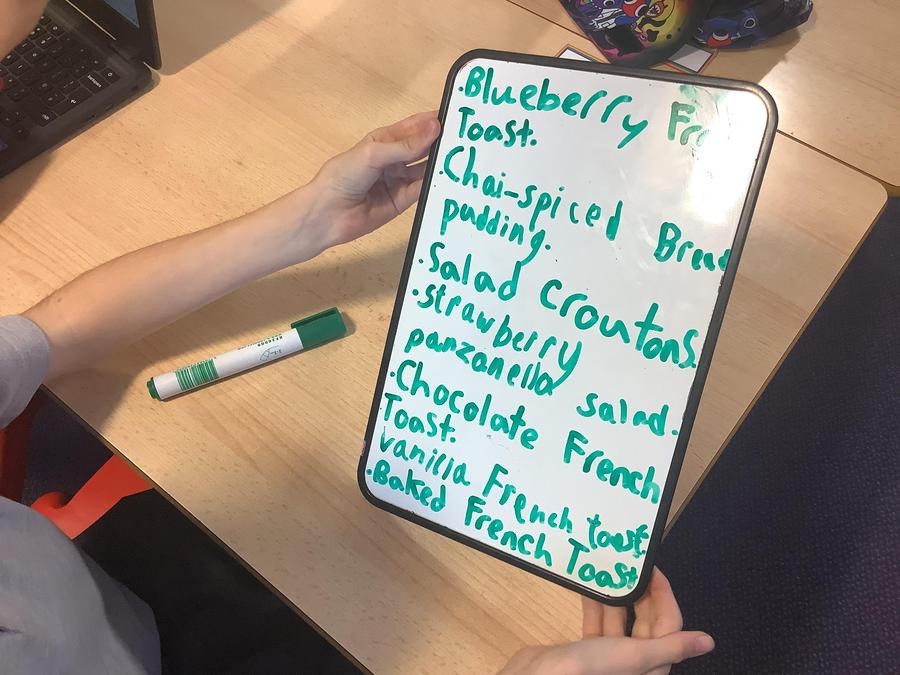 .Blueberry Fre
Toast.
.Chai-spiced Bread
pudding.
.Salad croutons.
.strawberry
panzanella salad.
.Chocolate French
Toast.
vanilla French toast.
.Baked French Toast